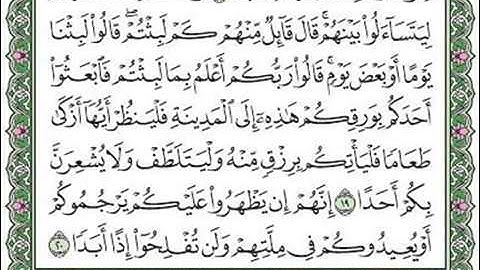 لِيَتَسَآءَلُوا۟ بَيْنَهُمْ ۚ قَالَ قَآئِلٌ مِّنْهُمْ كَمْ لَبِثْتُمْ ۖ قَالُوا۟ لَبِثْنَا
يَوْمًا أَوْ بَعْضَ يَوْمٍ ۚ قَالُوا۟ رَبُّكُمْ أَعْلَمُ بِمَا لَبِثْتُمْ فَٱبْعَثُوٓا۟
أَحَدَكُم بِوَرِقِكُمْ هَٰذِهِۦٓ إِلَى ٱلْمَدِينَةِ فَلْيَنظُرْ أَيُّهَآ أَزْكَىٰ
طَعَامًا فَلْيَأْتِكُم بِرِزْقٍ مِّنْهُ وَلْيَتَلَطَّفْ وَلَا يُشْعِرَنَّ
بِكُمْ أَحَدًا ١٩ إِنَّهُمْ إِن يَظْهَرُوا۟ عَلَيْكُمْ يَرْجُمُوكُمْ
أَوْ يُعِيدُوكُمْ فِى مِلَّتِهِمْ وَلَن تُفْلِحُوٓا۟ إِذًا أَبَدًا ٢٠